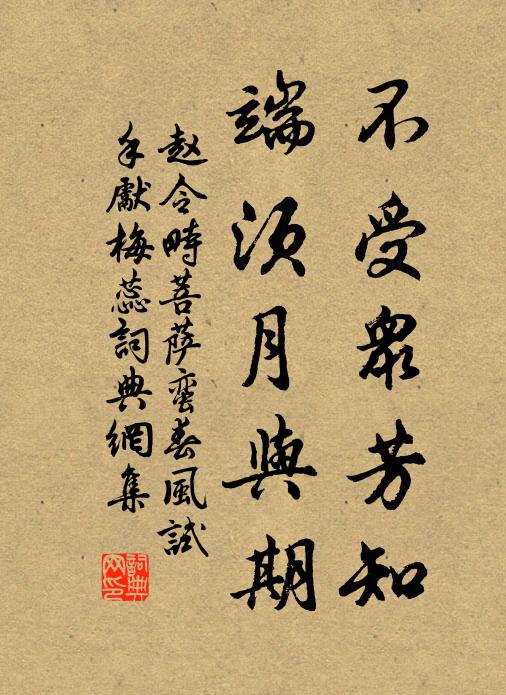 不受眾芳知
端須月與期
赵令畤菩萨蛮春風試
手獻梅蕊詞典網集
詞典网印